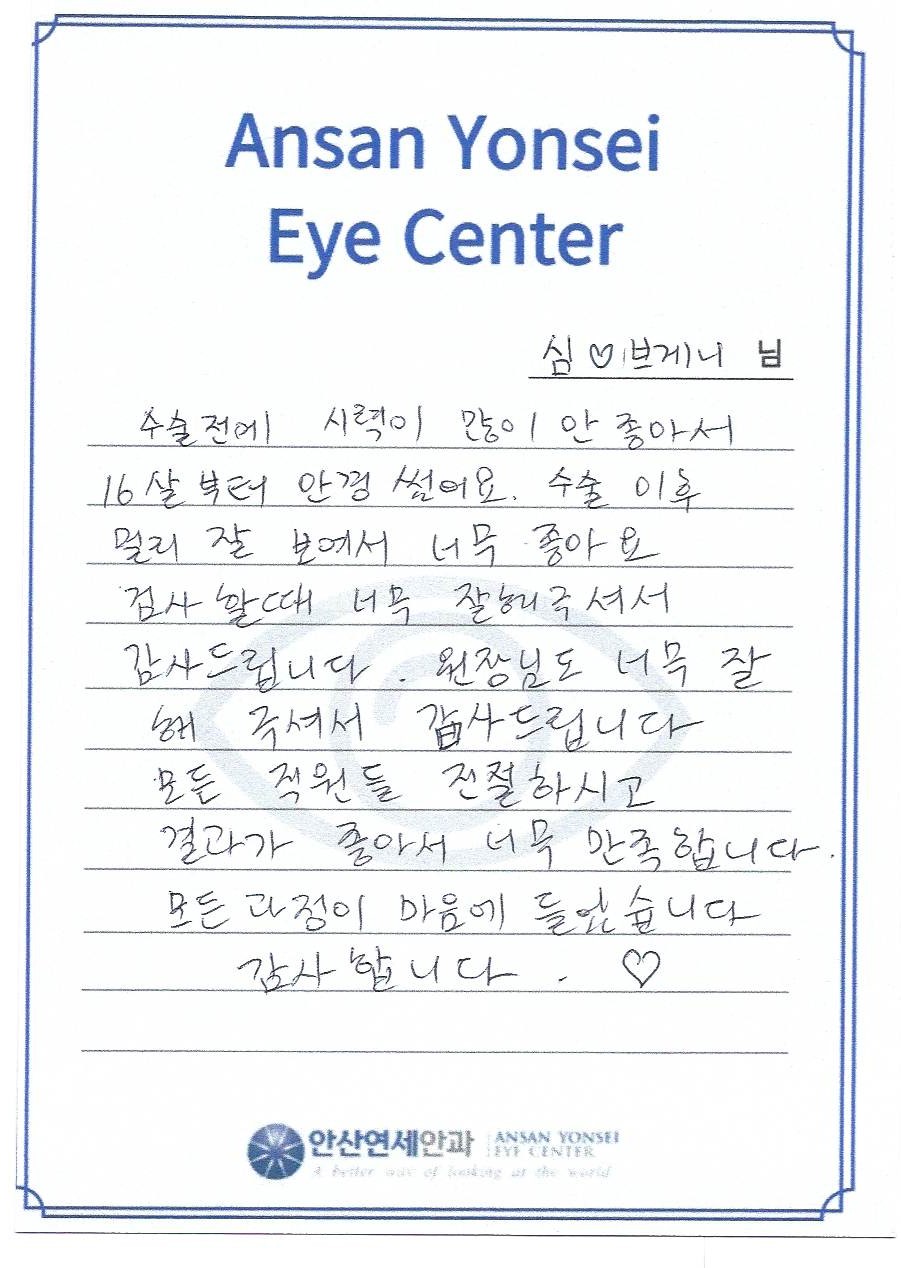 Ansan Yonsei
Eye Center
심♡브게니 님
수술전에 시력이 많이 안 좋아서
16살부터 안경 썼어요. 수술 이후
멀리 잘 보여서 너무 좋아요
검사할때 너무 잘해주셔서
감사드립니다. 원장님도 너무 잘
해 주셔서 감사드립니다
모든 직원들 친절하시고
결과가 좋아서 너무 만족합니다.
모든과정이 마음에 들었습니다
감사합니다. ♡
안산연세안과 ANSAN YONSEI
EYE CENTER
A better way of looking at the world